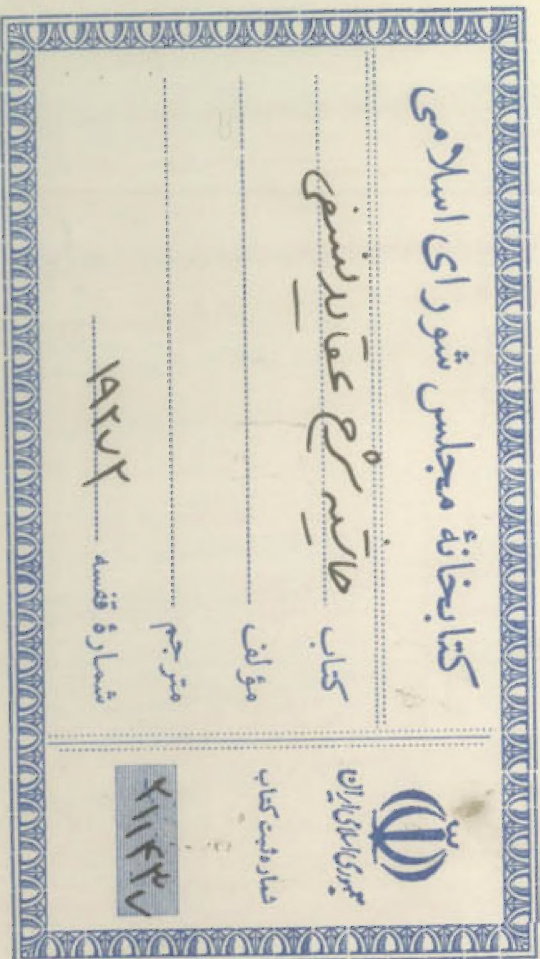 کتابخانهٔ مجلس شورای اسلامی
کتاب حاشیه شرح عقائد نسفی
مؤلف
مترجم
شمارهٔ قفسه ۱۹۲۷۲
جمهوری اسلامی ایران
شماره ثبت کتاب
۲۱۱۴۳۷